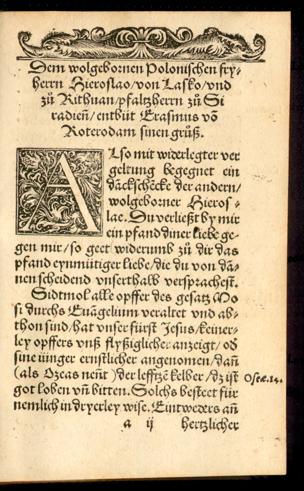 Dem wolgebornen Polonischen fry⸗
herrn Hieroslao/ von Lasko/ vnd
zů Rithuan/ pfaltzherrn zů Si
radien/ entbüt Erasmus vō
Roterodam sinen grůß.
Also mit widerlegter ver
geltung begegnet ein
dāckschēcke der andern/
wolgeborner Hieros⸗
lae. Du verließt by mir
ein pfand diner liebe ge⸗
gen mir/ so geet widerumb zů dir das
pfand eynmütiger liebe/ die du von dā⸗
nen scheidend vnserthalb versprachest.
Sidtmol alle opffer des gesatz Mo
si durchs Euāgelium veraltet vnd ab⸗
thon sind/ hat vnser fürst Jesus/ keiner⸗
ley opffers vnß flyßigliche anzeigt/ ob
sine iünger ernstlicher angenomen/ dañ
(als Ozeas neñt) der lefftzē kelber/ dz ist
Osee.14.
got loben vñ bitten. Solchs besteet für
nemlich in dryerley wise. Eintweders añ
a ij hertzlicher